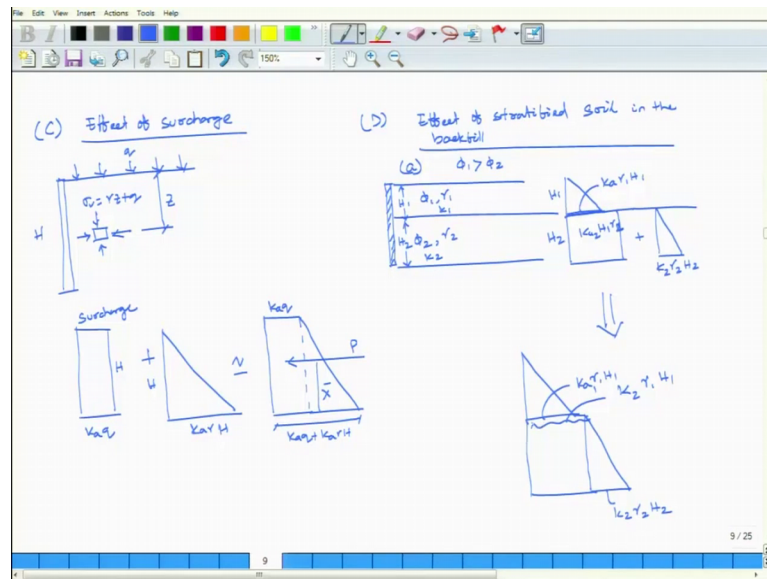 File Edit View Insert Actions Tools Help
B I
150%
(C) Effect of surcharge
q
σv = γz+q
z
H
Surcharge
H
Kaq
+
H
KaγH
~
Kaq
P
x̄
Kaq + KaγH
(D) Effect of stratified soil in the
backfill
(a) φ1 > φ2
H1 φ1, γ1
K1
H2 φ2, γ2
K2
H1
Kaγ1H1
H2
Ka2H1γ2
+
K2γ2H2
Ka1γ1H1
K2γ1H1
K2γ2H2
9 / 25
9